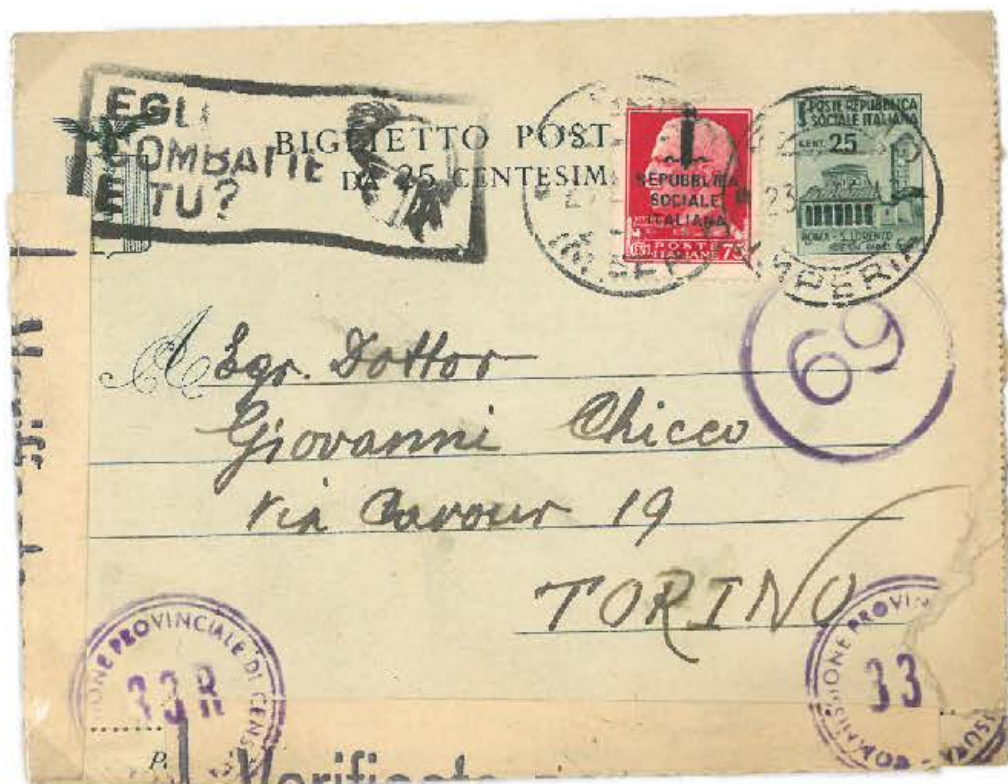 EGLI
COMBATTE
E TU?
BIGLIETTO POST
DA 25 CENTESIM
REPUBBLICA
SOCIALE
ITALIANA
POSTE
ITALIANE 75
POSTE REPUBBLICA
SOCIALE ITALIANA
CENT. 25
ROMA - S. LORENZO
IMPERIA
69
A Egr. Dottor
Giovanni Chicco
Via Cavour 19
TORINO
IONE PROVINCIALE DI CENS
33R
COMMISSIONE PROVIN
33
SURA
P.
Verificato